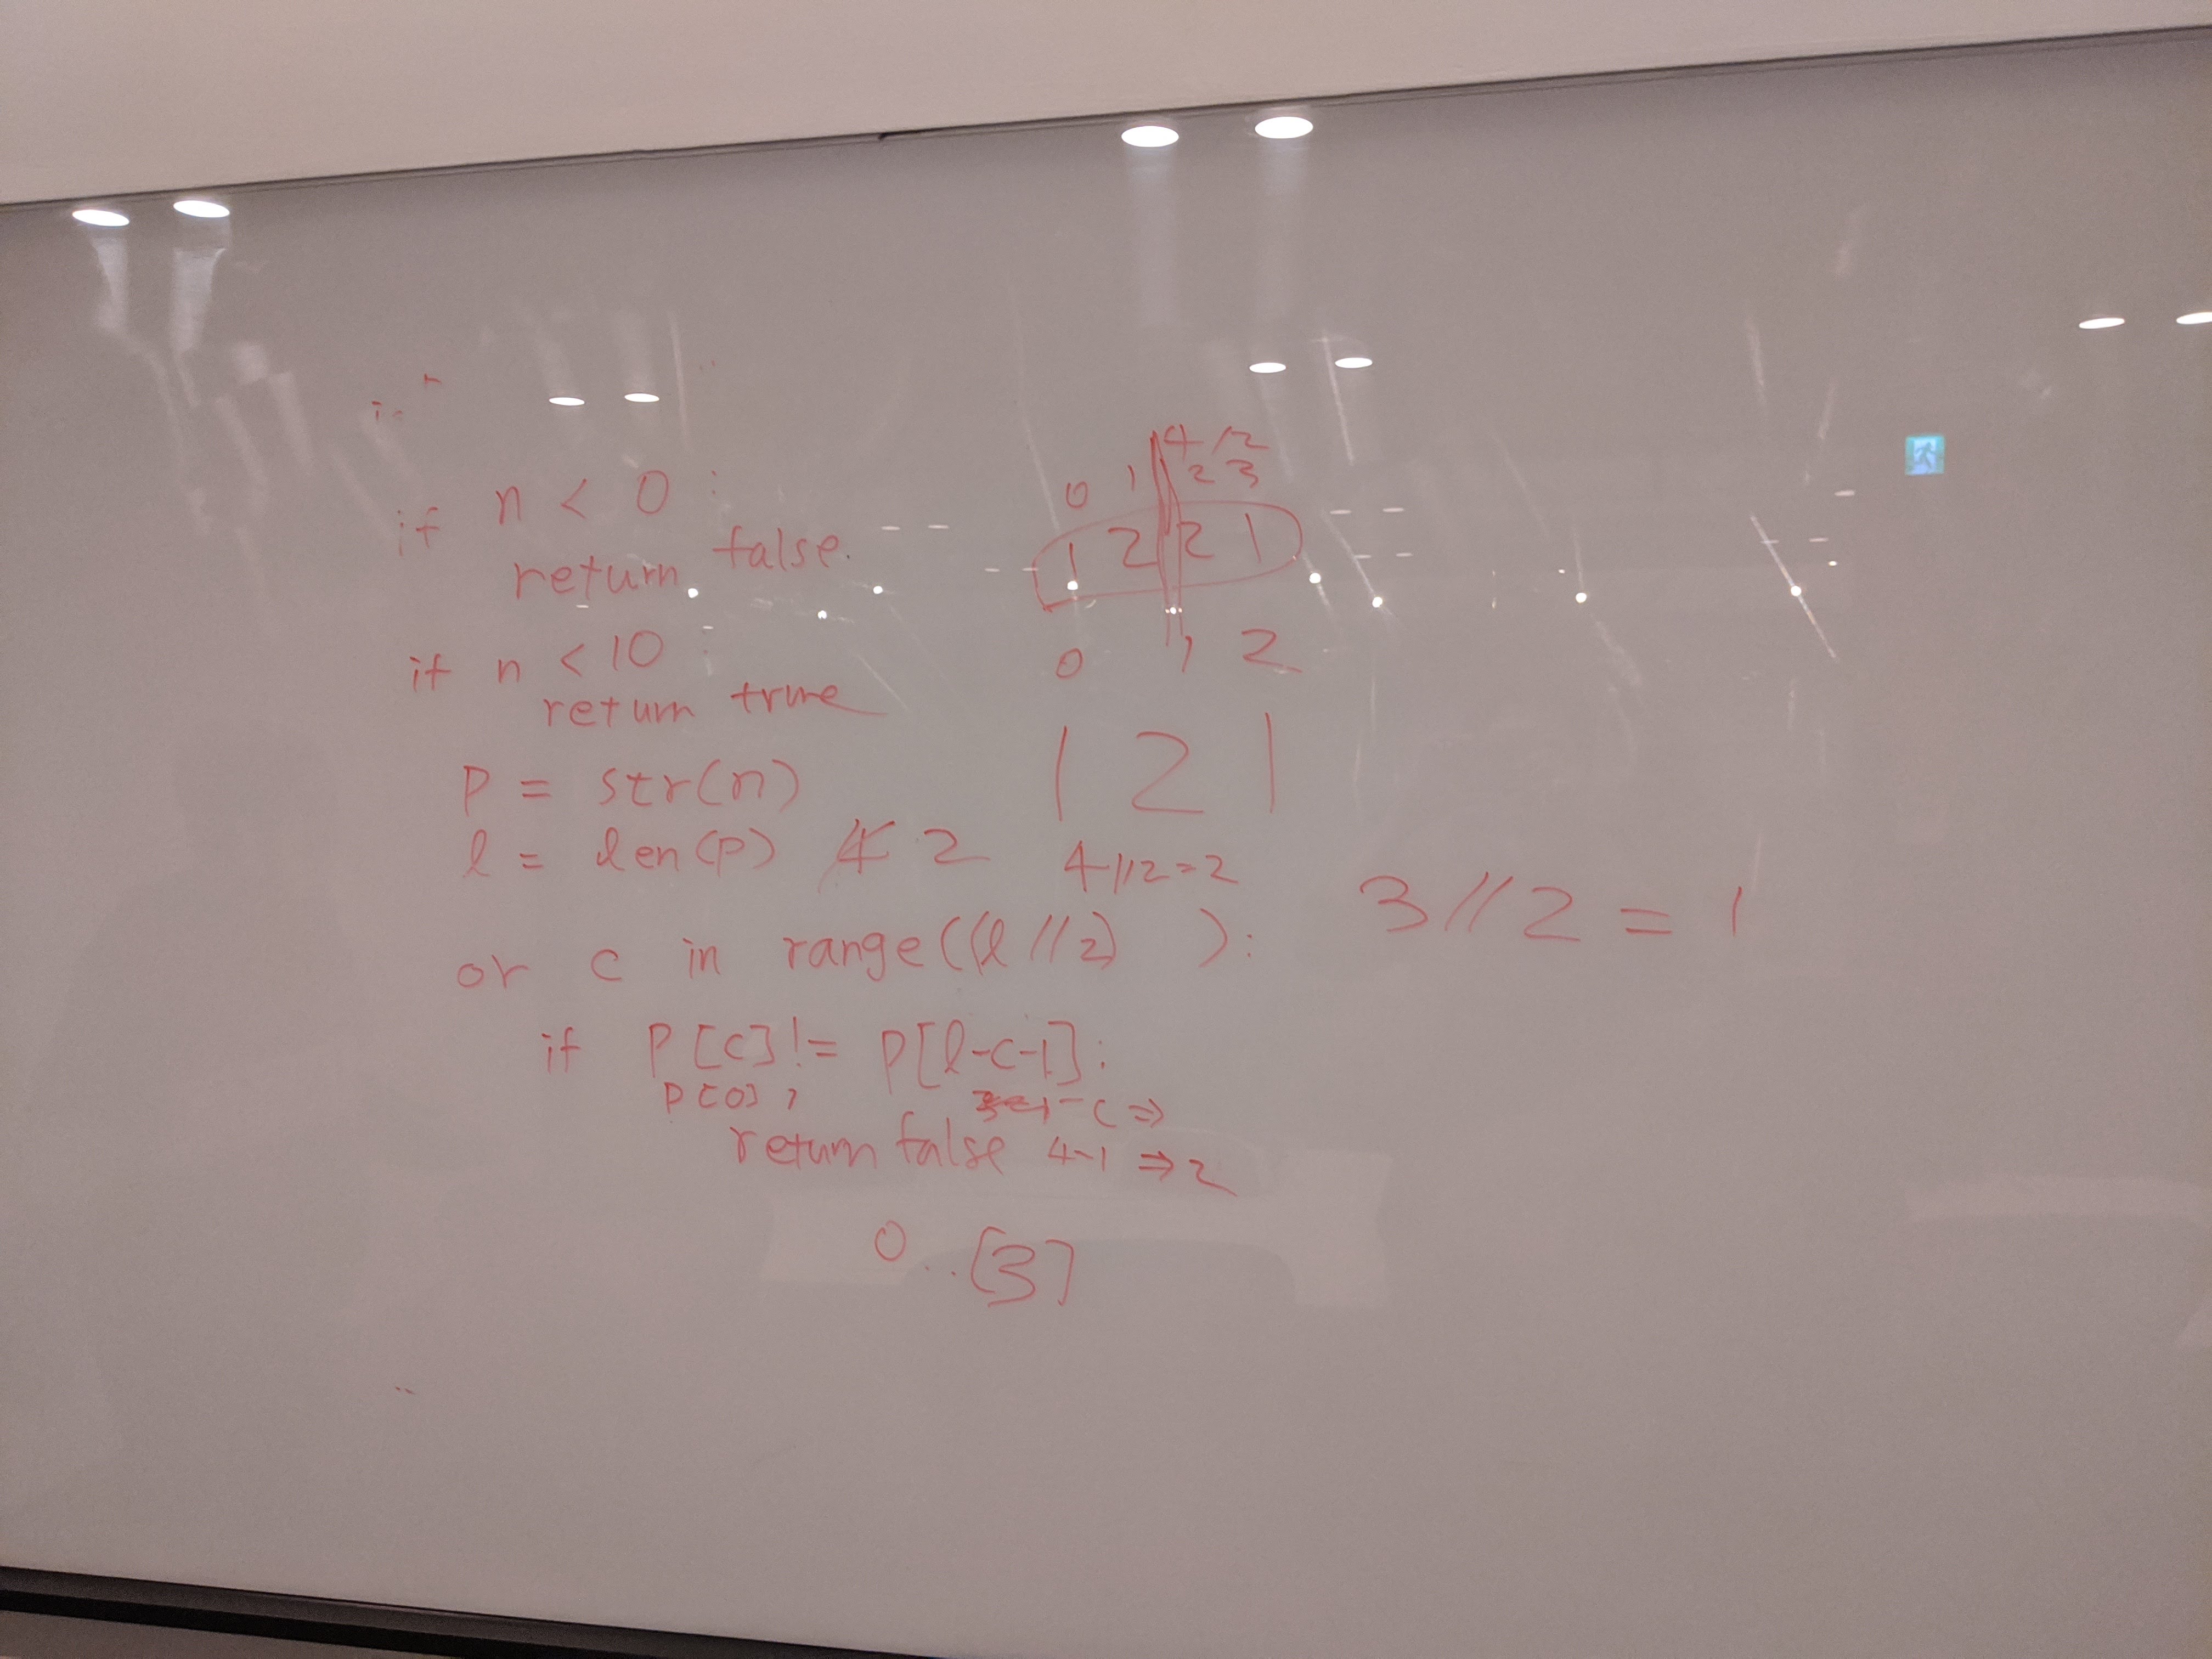 if n < 0 :
return false.
if n < 10 :
return true
P = str(n)
l = len(p) 4 2
or c in range((l // 2) ):
if P[c] != P[l-c-1]:
P[0],
- c ⇒
return false 4-1 ⇒ 2
0 .. [3]
4/2
0 1 2 3
1 2 2 1
0 1 2
1 2 1
4//2=2
3//2 = 1